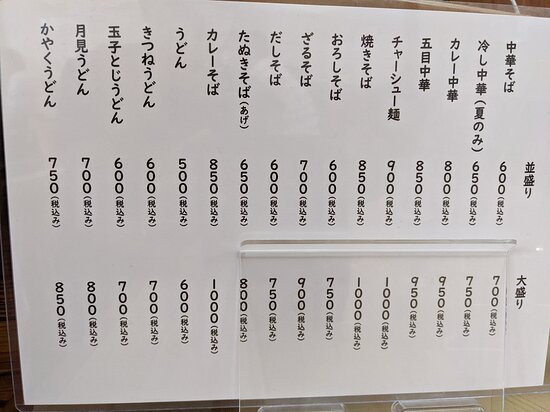 並盛り 大盛り
中華そば 600(税込み) 700(税込み)
冷し中華(夏のみ) 650(税込み) 750(税込み)
カレー中華 800(税込み) 950(税込み)
五目中華 850(税込み) 950(税込み)
チャーシュー麺 900(税込み) 1000(税込み)
焼きそば 850(税込み) 1000(税込み)
おろしそば 600(税込み) 750(税込み)
ざるそば 700(税込み) 900(税込み)
だしそば 600(税込み) 750(税込み)
たぬきそば(あげ) 650(税込み) 800(税込み)
カレーそば 850(税込み) 1000(税込み)
うどん 500(税込み) 600(税込み)
きつねうどん 600(税込み) 700(税込み)
玉子とじうどん 600(税込み) 700(税込み)
月見うどん 700(税込み) 800(税込み)
かやくうどん 750(税込み) 850(税込み)